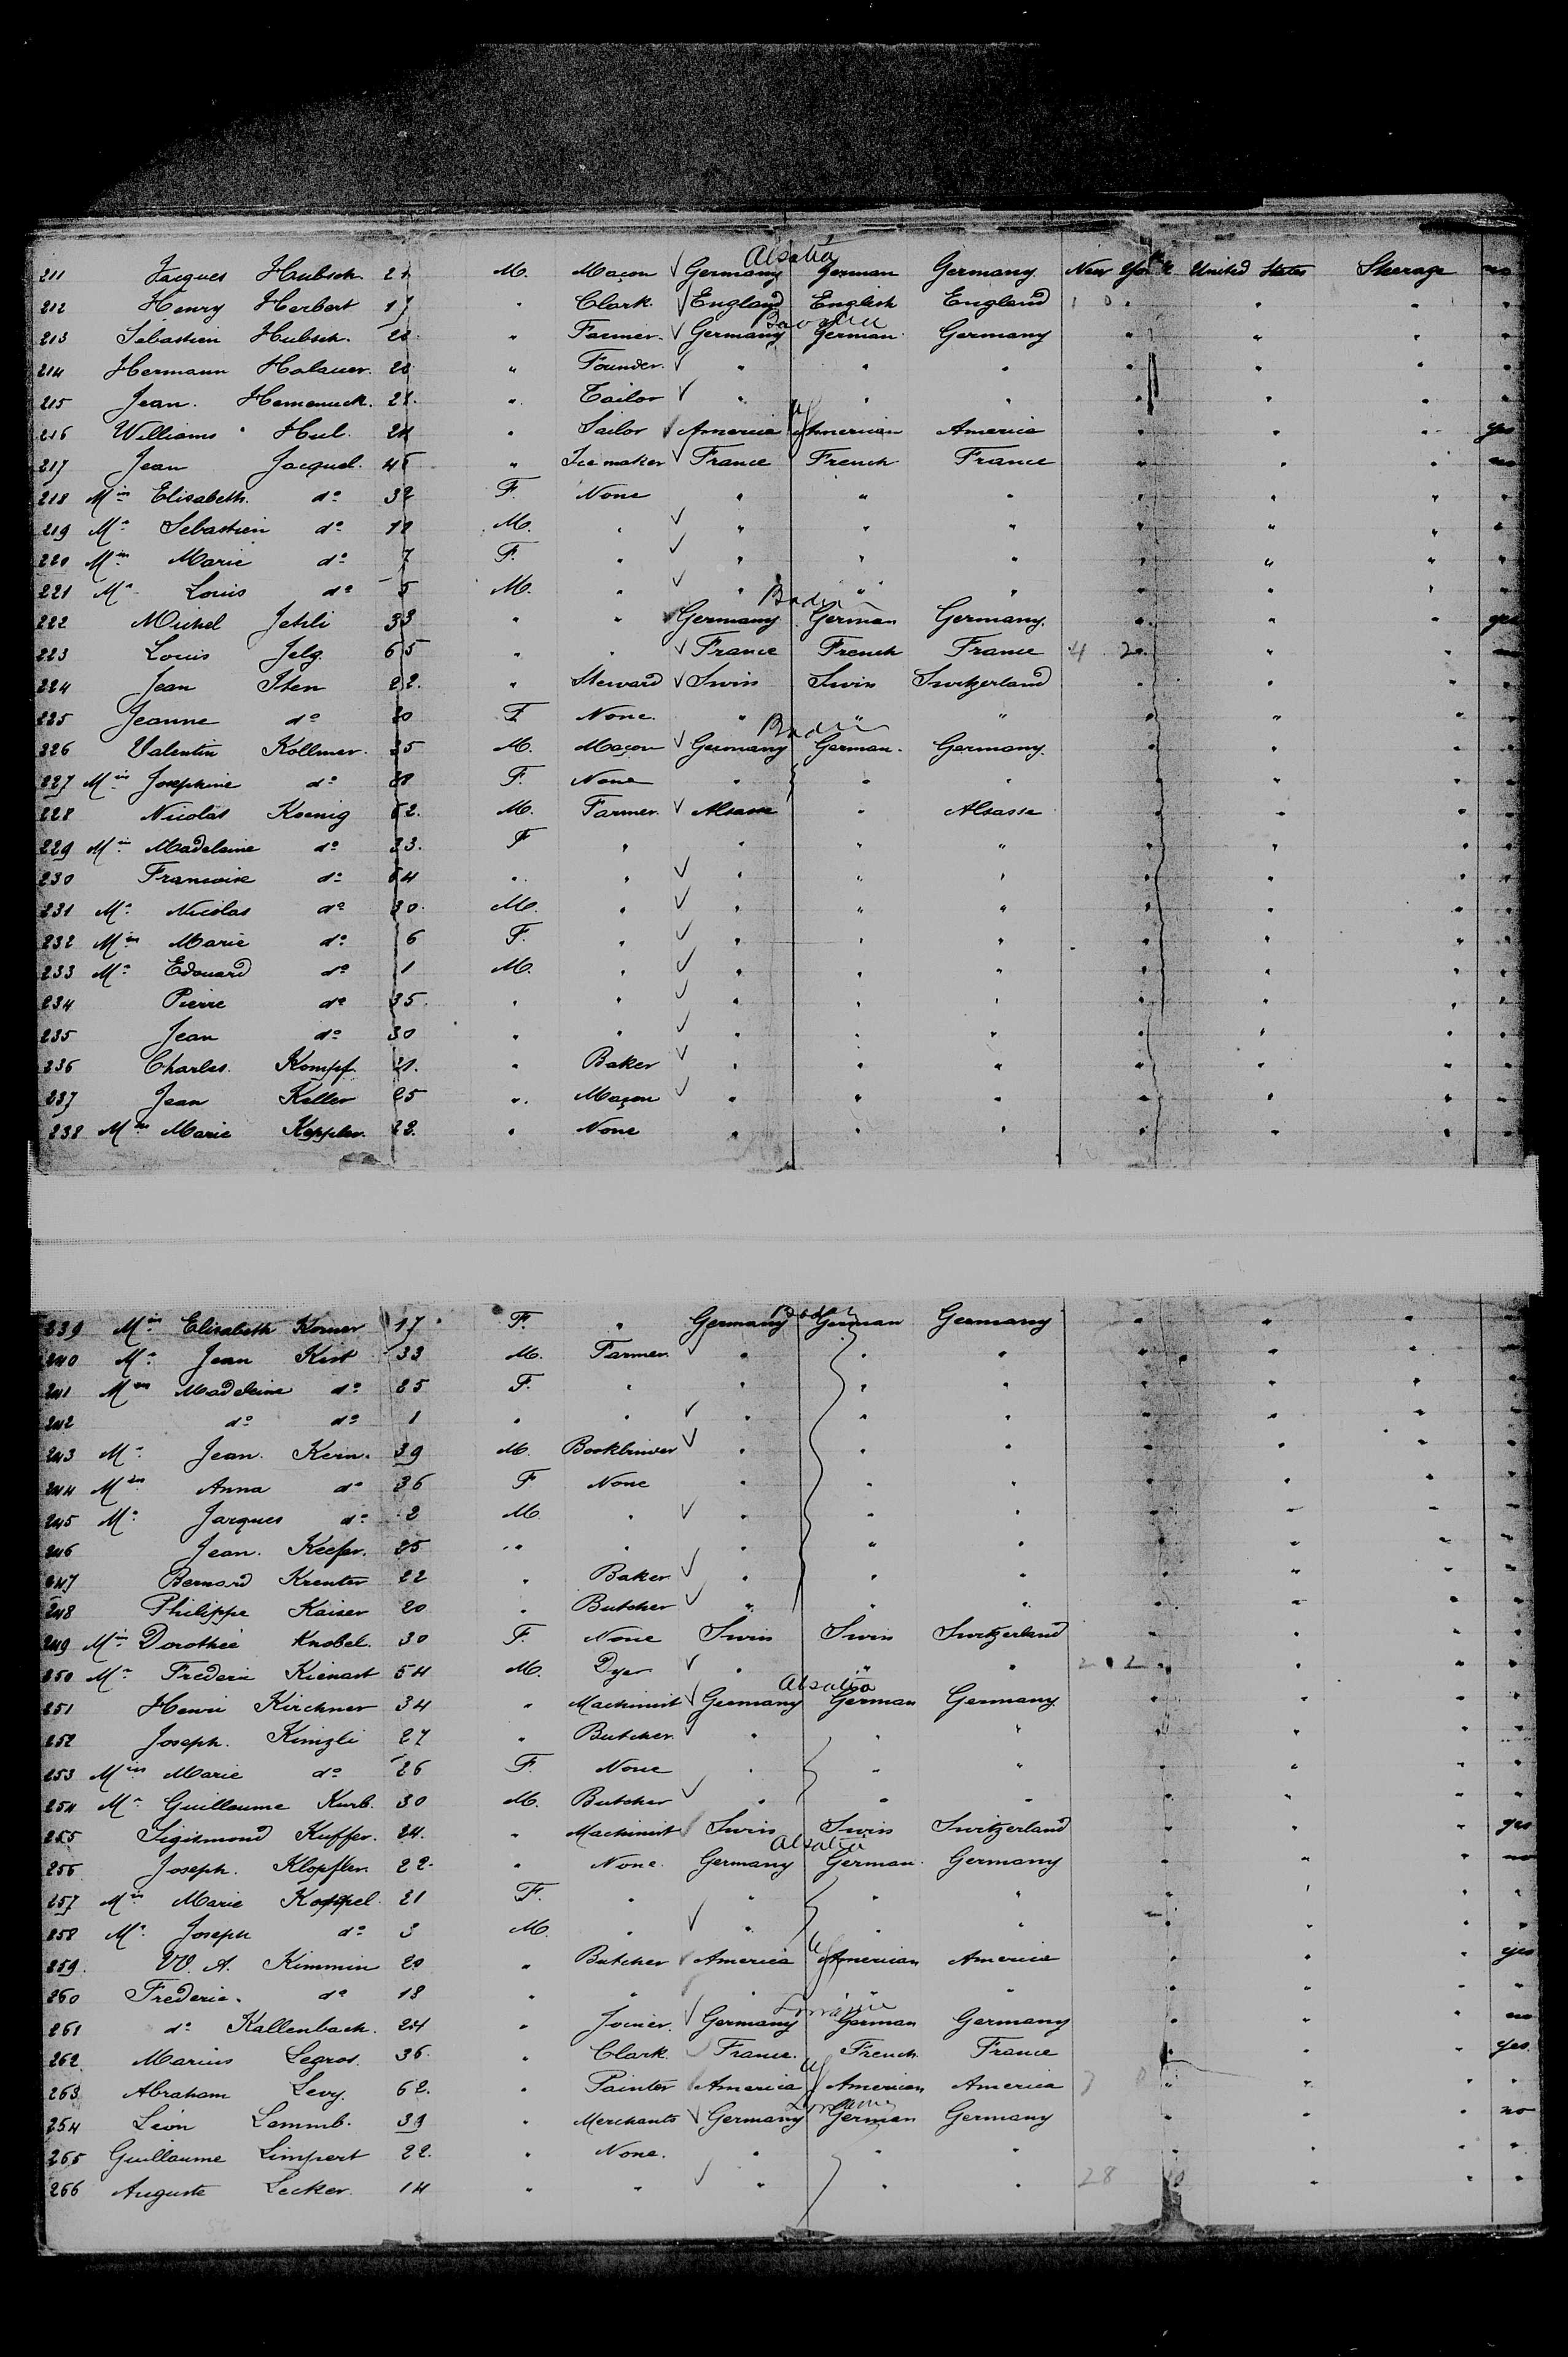 Alsatia
211 Jacques Hubsch 2 M. Maçon √ Germany German Germany New York United States Steerage no
212 Henry Herbert 17 " Clark. √ England English England " " " "
Bavaria
213 Sebastien Hubsch. 28 " Farmer. √ Germany German Germany " " " "
214 Hermann Holauer. 28 " Founder. √ " " " " " " "
215 Jean. 28. " Tailor √ " " " " " " "
216 Williams Hul. 24 " Sailor √ America American America " " " yes
217 Jean Jacquel. 45 " Ice maker √ France French France " " " no
218 Mme Elisabeth. do 32 F. None " " " " " " "
219 Mr Sebastien do 12 M. " √ " " " " " " "
220 Mme Marie do 7 F. " √ " " " " " " "
221 Mr Louis do 5 M. " √ " " " " " " "
Baden
222 Michel Jehli 33 " " √ Germany German Germany. " " " yes
223 Louis Jelg. 65 " " √ France French France 4 2 " " " no
224 Jean Iten 22. " Steward √ Swiss Swiss Switzerland " " " "
225 Jeanne do 20 F. None. " " " " " " "
Baden
226 Valentin Kollmer. 35 M. Maçon √ Germany German. Germany. " " " "
227 Mme Josephine do 28 F. None " " " " " " "
228 Nicolas Koenig 62. M. Farmer. √ Alsasse " Alsasse " " " "
229 Mme Madeleine do 23. F " " " " " " " "
230 Francoise do 64 " " √ " " " " " " "
231 Mr Nicolas do 30. M. " √ " " " " " " "
232 Mme Marie do 6 F. " √ " " " " " " "
233 Mr Edouard do 1 M. " √ " " " " " " "
234 Pierre do 35. " " √ " " " " " " "
235 Jean do 30 " " √ " " " " " " "
236 Charles. Kompf 21. " Baker √ " " " " " " "
237 Jean Keller 25 " Maçon √ " " " " " " "
238 Mme Marie Keppler. 22. " None " " " " " " "
Baden
239 Mme Elisabeth Korner 17 F. " Germany German Germany " " "
240 Mr Jean Kist 33 M. Farmer. √ " " " " " " "
241 Mme Madeleine do 25 F. " " " " " " " "
242 do do 1 " " √ " " " " " " "
243 Mr Jean. Kern. 39 M. Bookbinder √ " " " " " " "
244 Mme Anna do 36 F None " " " " " " "
245 Mr Jacques do 2 M. " √ " " " " " " "
246 Jean. Keefer. 25 " " " " " " " " "
247 Bernard Kreuter 22 " Baker √ " " " " " " "
248 Philippe Kaiser 20 " Butcher √ " " " " " " "
249 Mme Dorothée Knobel. 30 F. None Swiss Swiss Switzerland " " " "
250 Mr Frederic Kienast 54 M. Dyer √ " " " " " " "
Alsatia
251 Henri Kirchner 34 " Machinist √ Germany German Germany " " " "
252 Joseph. Kinzli 27 " Butcher. √ " " " " " " "
253 Mme Marie do 26 F. None " " " " " " "
254 Mr Guillaume Kurb. 30 M. Butcher √ " " " " " " "
255 Sigismond Kuffer. 24. " Machinist √ Swiss Swiss Switzerland " " " yes
Alsatia
256 Joseph. Klopfler. 22. " None. Germany German. Germany " " " no
257 Mme Marie Koppel 21 F. " " " " " " " "
258 Mr Joseph do 3 M. " √ " " " " " " "
259. W. A. Kimmin 20 " Butcher √ America American America " " " yes
260 Frederic. do 18 " " " " " " " " "
Lorraine
261 do Kallenbach. 24 " Joiner. √ Germany German Germany " " " no
262 Marius Legros. 36. " Clark. √ France. French. France " " " yes.
263 Abraham Levy. 62. " Painter √ America American America " " " "
Lorraine
264 Léon Lammb. 39 " Merchants √ Germany German Germany " " " no
265 Guillaume Limpert 22. " None. " " " " " " "
266 Auguste Lecker. 14 " " √ " " " 28 " " "